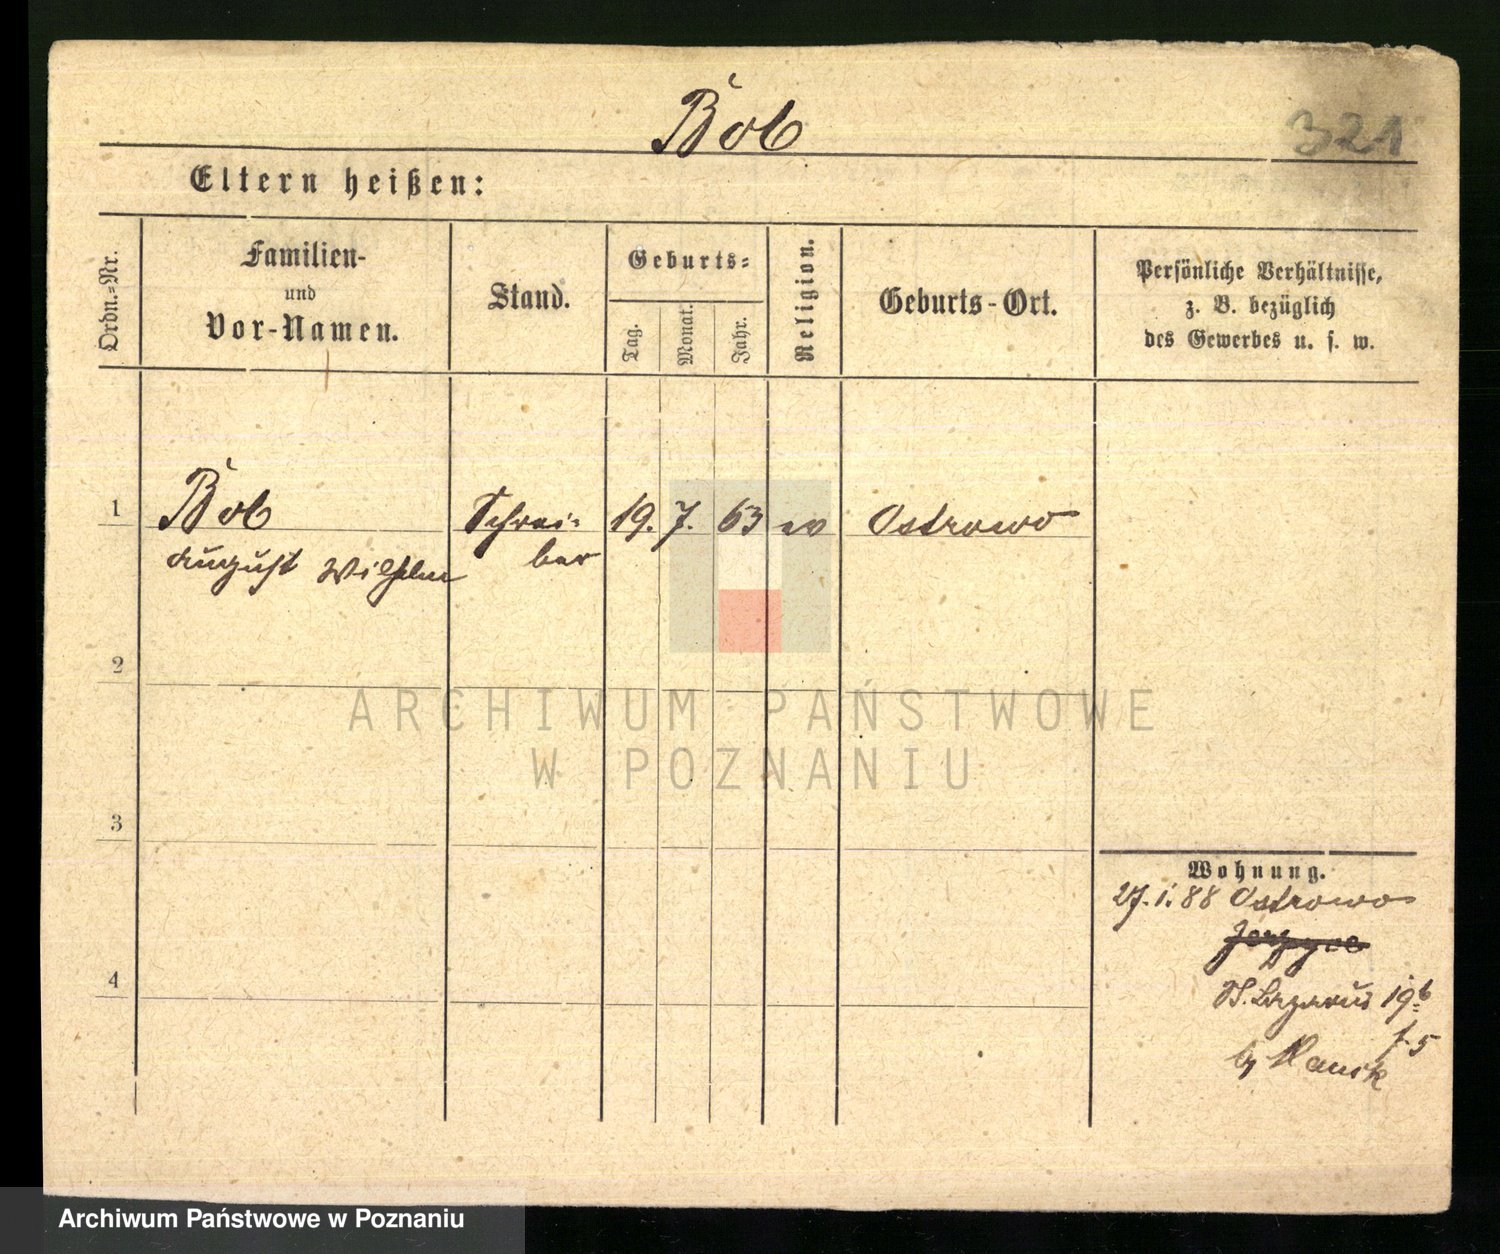 Bob
321
Eltern heißen:
Ordn.-Nr.
Familien-
und
Vor-Namen.
Stand.
Geburts-
Tag.
Monat.
Jahr.
Religion.
Geburts-Ort.
Persönliche Verhältnisse,
z. B. bezüglich
des Gewerbes u. s. w.
1 Bob Schrei- 19. 7. 63 ev Ostrowo
August Wilhelm ber
2
ARCHIWUM PAŃSTWOWE
W POZNANIU
3
Wohnung.
27.1.88 Ostrowo
Jerzyce
4
St. Lazarus 19b
Archiwum Państwowe w Poznaniu